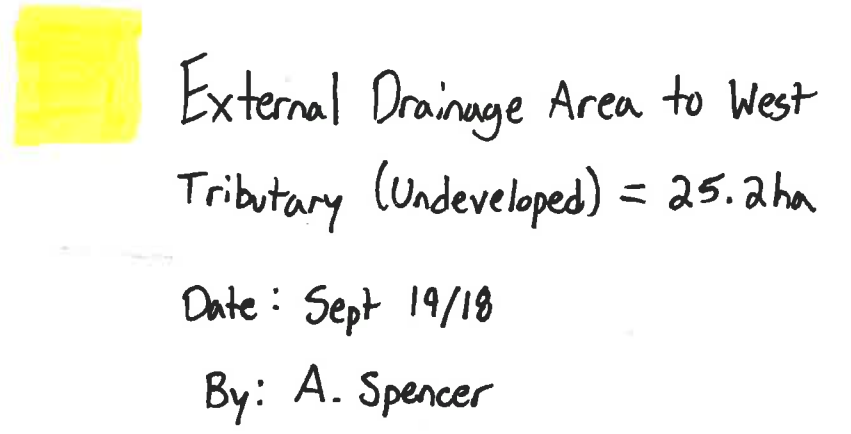 External Drainage Area to West
Tributary (Undeveloped) = 25.2ha
Date: Sept 19/18
By: A. Spencer